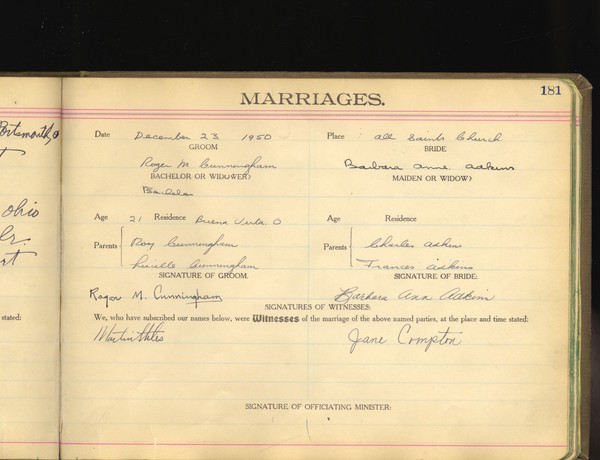 181
MARRIAGES.
Portsmouth, O
Date December 23 1950 Place All Saints Church
GROOM BRIDE
Roger M. Cunningham Barbara Anne Adkins
BACHELOR OR WIDOWER? MAIDEN OR WIDOW?
Bachelor
Ohio
Age 21 Residence Buena Vista O Age Residence
Jr.
Parents Roy Cunningham Parents Charles Adkins
Lucille Cunningham Frances Adkins
SIGNATURE OF GROOM. SIGNATURE OF BRIDE:
Roger M. Cunningham Barbara Ann Adkins
SIGNATURES OF WITNESSES:
stated: We, who have subscribed our names below, were Witnesses of the marriage of the above named parties, at the place and time stated:
Martin Jane Compton
SIGNATURE OF OFFICIATING MINISTER: